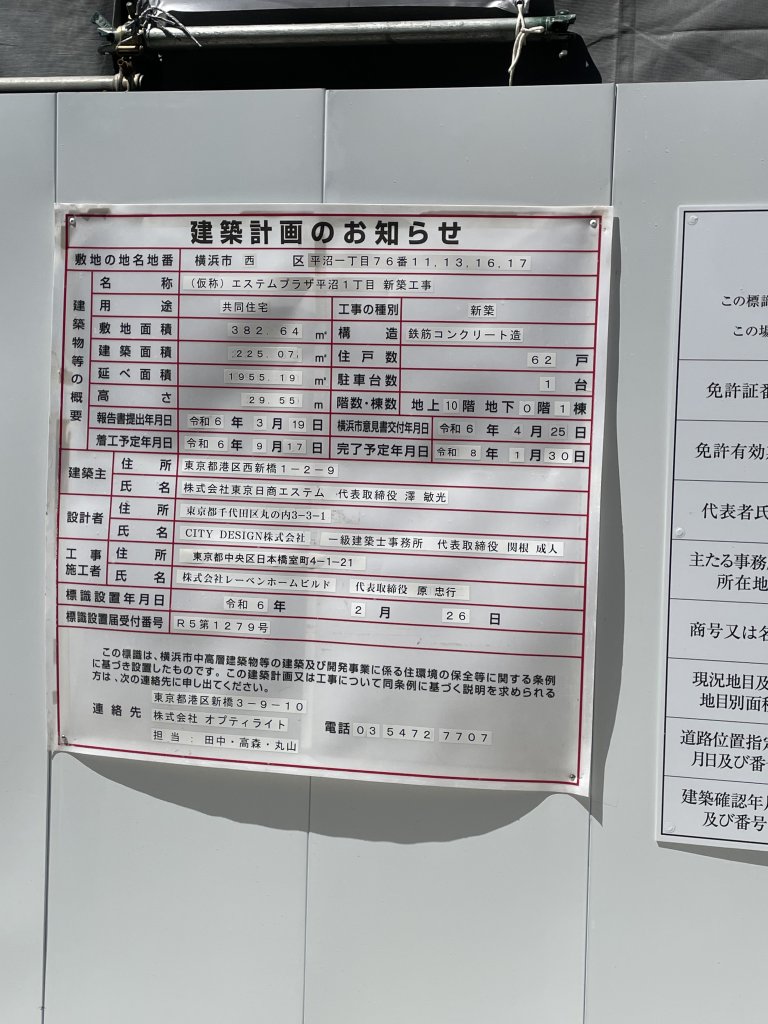 建築計画のお知らせ
敷地の地名地番 横浜市 西 区 平沼一丁目76番11,13,16,17
建築物等の概要
名称 （仮称）エステムプラザ平沼1丁目 新築工事
用途 共同住宅 工事の種別 新築
敷地面積 382.64 ㎡ 構造 鉄筋コンクリート造
建築面積 225.07 ㎡ 住戸数 62 戸
延べ面積 1955.19 ㎡ 駐車台数 1 台
高さ 29.55 m 階数・棟数 地上 10 階 地下 0 階 1 棟
報告書提出年月日 令和 6 年 3 月 19 日 横浜市意見書交付年月日 令和 6 年 4 月 25 日
着工予定年月日 令和 6 年 9 月 17 日 完了予定年月日 令和 8 年 1 月 30 日
建築主 住所 東京都港区西新橋1-2-9
氏名 株式会社東京日商エステム 代表取締役 澤 敏光
設計者 住所 東京都千代田区丸の内3-3-1
氏名 CITY DESIGN株式会社 一級建築士事務所 代表取締役 関根 成人
工事施工者 住所 東京都中央区日本橋室町4-1-21
氏名 株式会社レーベンホームビルド 代表取締役 原 忠行
標識設置年月日 令和 6 年 2 月 26 日
標識設置届受付番号 R5第1279号
この標識は、横浜市中高層建築物等の建築及び開発事業に係る住環境の保全等に関する条例
に基づき設置したものです。この建築計画又は工事について同条例に基づく説明を求められる
方は、次の連絡先に申し出てください。
連絡先 東京都港区新橋3-9-10
株式会社 オプティライト 電話 03 5472 7707
担当：田中・高森・丸山
この標識
この場
免許証番
免許有効期
代表者氏
主たる事務所
所在地
商号又は名
現況地目及
地目別面積
道路位置指定
月日及び番号
建築確認年月
及び番号